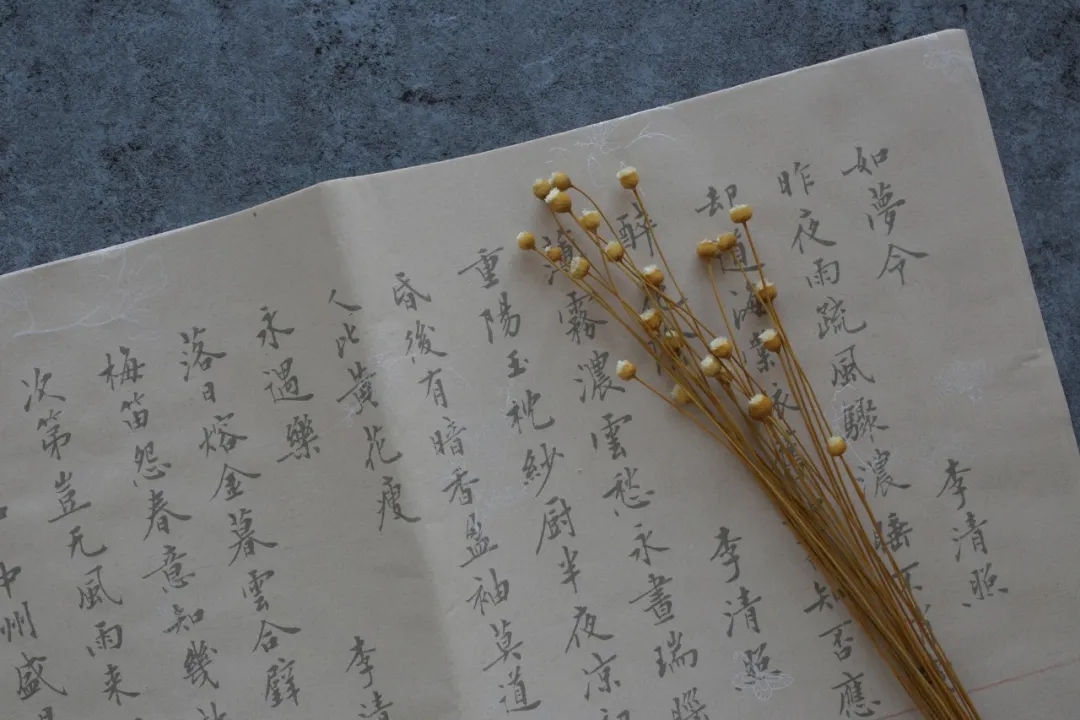 如夢令 李清照
昨夜雨疏風驟濃睡不
却道海棠依知否應
醉花陰 李清照
薄霧濃雲愁永晝瑞腦
重陽玉枕紗厨半夜凉初
昏後有暗香盈袖莫道
人比黃花瘦
永遇樂 李清
落日熔金暮雲合璧
梅笛怨春意知幾
次第豈无風雨来
中州盛